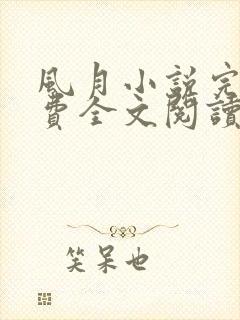 風月小說完
費全文閱讀
笑呆也